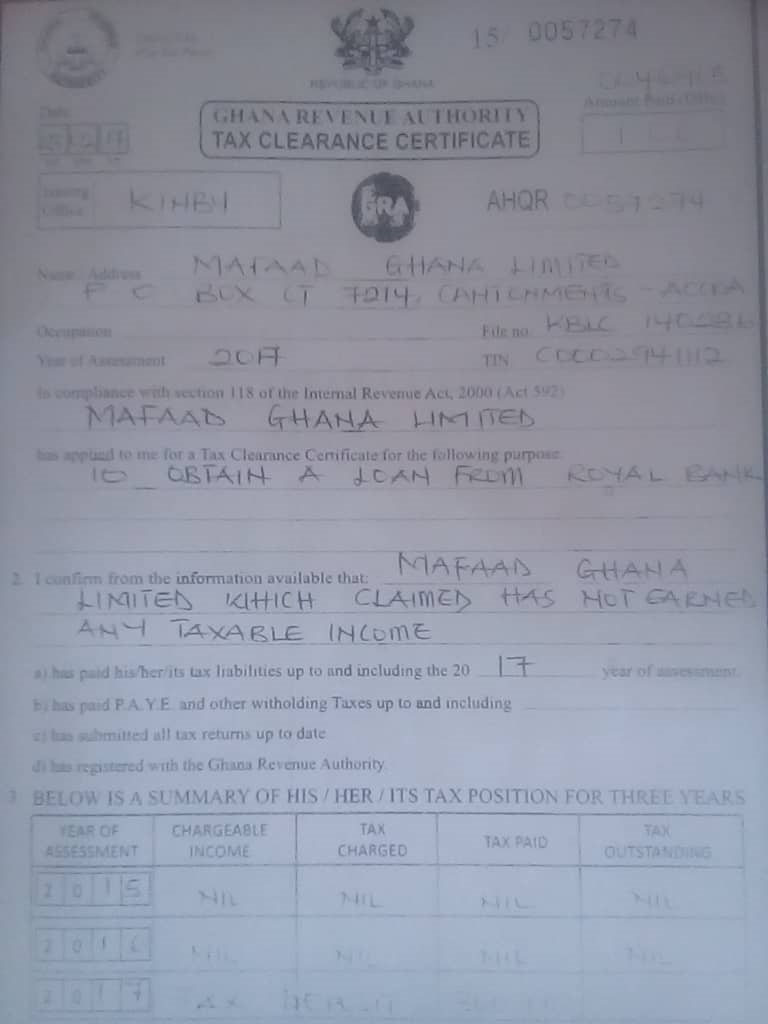 15/ 0057274
REPUBLIC OF GHANA
Amount Paid
Date
GHANA REVENUE AUTHORITY
TAX CLEARANCE CERTIFICATE
Issuing
Office KINBU
GRA
AHQR 0057274
Name / Address MAFAAD GHANA LIMITED
P O BOX CT 7214, CANTONMENTS - ACCRA
Occupation
File no. KBLC
Year of Assessment 2017
TIN C0002941112
In compliance with section 118 of the Internal Revenue Act, 2000 (Act 592)
MAFAAD GHANA LIMITED
has applied to me for a Tax Clearance Certificate for the following purpose:
TO OBTAIN A LOAN FROM ROYAL BANK
2. I confirm from the information available that: MAFAAD GHANA
LIMITED WHICH CLAIMED HAS NOT EARNED
ANY TAXABLE INCOME
a) has paid his/her/its tax liabilities up to and including the 20 17 year of assessment.
b) has paid P.A.Y.E. and other witholding Taxes up to and including
c) has submitted all tax returns up to date
d) has registered with the Ghana Revenue Authority.
3. BELOW IS A SUMMARY OF HIS / HER / ITS TAX POSITION FOR THREE YEARS
YEAR OF ASSESSMENT CHARGEABLE INCOME TAX CHARGED TAX PAID TAX OUTSTANDING
2015 NIL NIL NIL NIL
2016 NIL NIL NIL NIL
2017 TAX